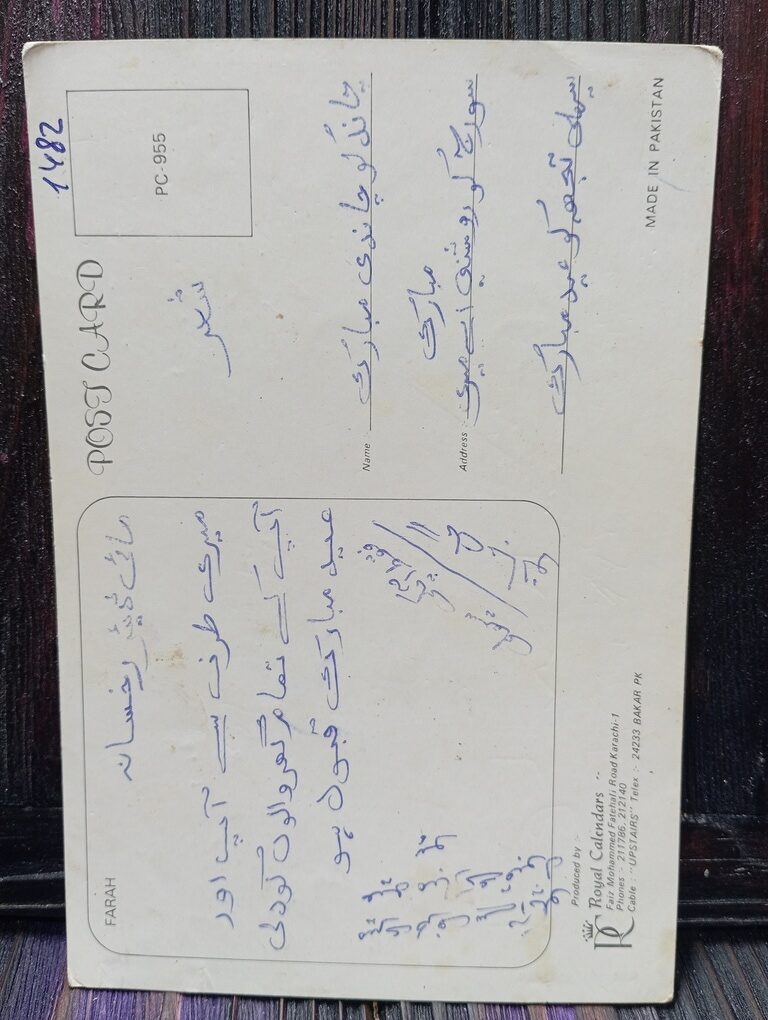 FARAH
مائی ڈئیر رخسانہ
میری طرف سے آپ اور
آپ کے تمام گھر والوں کو دلی
عید مبارک قبول ہو
Produced by :-
Royal Calendars
Faiz Mohammed Fatehali Road Karachi-1
Phones :- 211786, 212140
Cable : "UPSTAIRS" Telex :- 24233 BAKAR PK
POST CARD
1482
PC-955
شعر
Name :- چاند کو چاندی مبارک
مبارک
Address :- سورج کو روشنی اے میری
سہیلی تجھ کو عید مبارک
MADE IN PAKISTAN